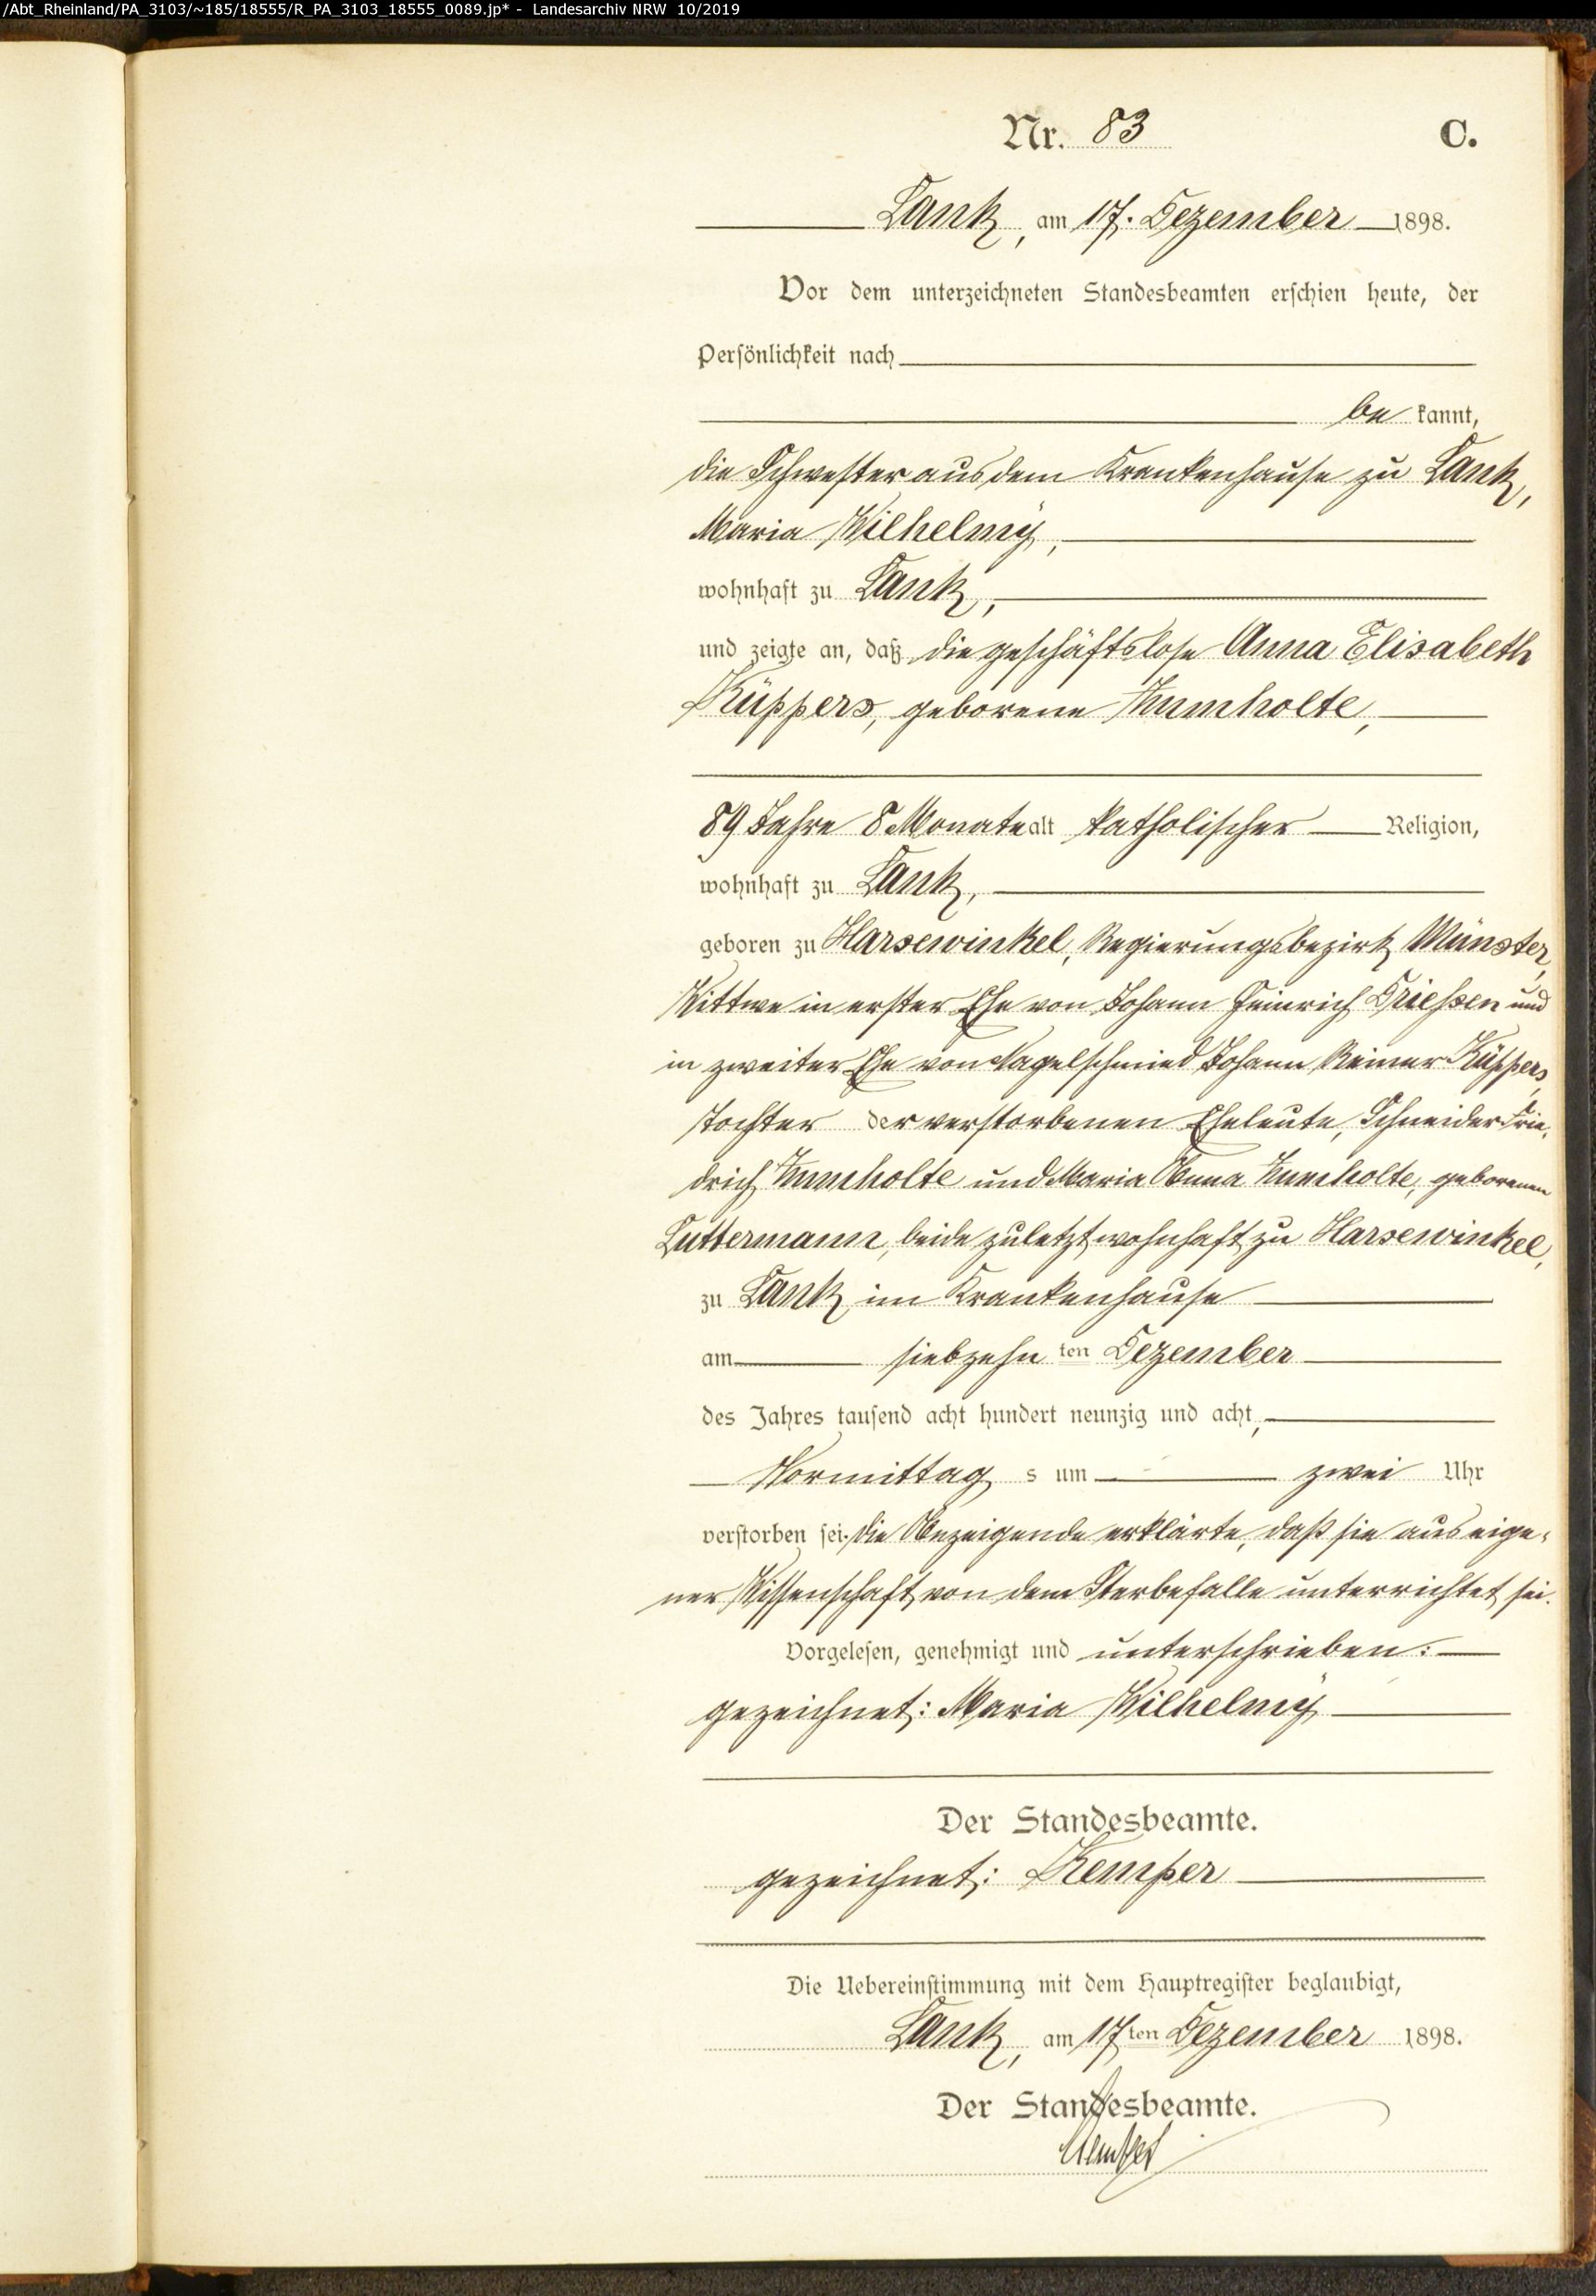 /Abt_Rheinland/PA_3103/~185/18555/R_PA_3103_18555_0089.jp* - Landesarchiv NRW 10/2019
Nr. 83 C.
Lank, am 17. Dezember 1898.
Vor dem unterzeichneten Standesbeamten erschien heute, der
Persönlichkeit nach
be kannt,
die Schwester aus dem Krankenhause zu Lank,
Maria Wilhelmÿ,
wohnhaft zu Lank,
und zeigte an, daß die geschäftslose Anna Elisabeth
Küppers, geborene Zumholte,
89 Jahre 8 Monate alt katholischer Religion,
wohnhaft zu Lank,
geboren zu Harsewinkel, Regierungsbezirk Münster,
Wittwe in erster Ehe von Johann Heinrich Drießen und
in zweiter Ehe von Nagelschmied Johann Reiner Küppers,
Tochter der verstorbenen Eheleute, Schneider Frie-
drich Zumholte und Maria Anna Zumholte, geborenen
Luttermann, beide zuletzt wohnhaft zu Harsewinkel,
zu Lank im Krankenhause
am siebzehn ten Dezember
des Jahres tausend acht hundert neunzig und acht,
Vormittag s um zwei Uhr
verstorben sei. Die Anzeigende erklärte, daß sie aus eige-
ner Wissenschaft von dem Sterbefalle unterrichtet sei.
Vorgelesen, genehmigt und unterschrieben:
gezeichnet: Maria Wilhelmÿ
Der Standesbeamte.
gezeichnet: Kemper
Die Uebereinstimmung mit dem Hauptregister beglaubigt,
Lank, am 17ten Dezember 1898.
Der Standesbeamte.
Kemper